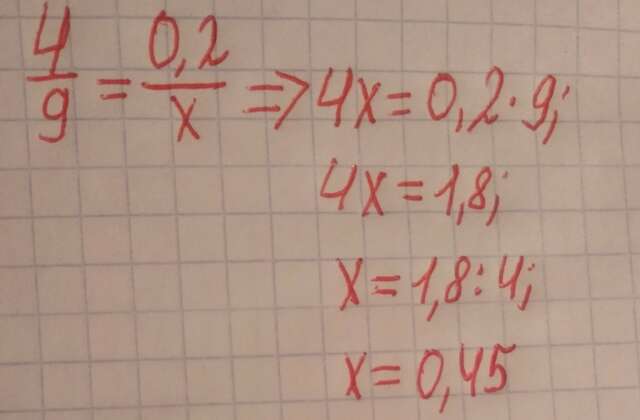 4/9 = 0,2/x => 4x = 0,2·9;
4x = 1,8;
x = 1,8:4;
x = 0,45